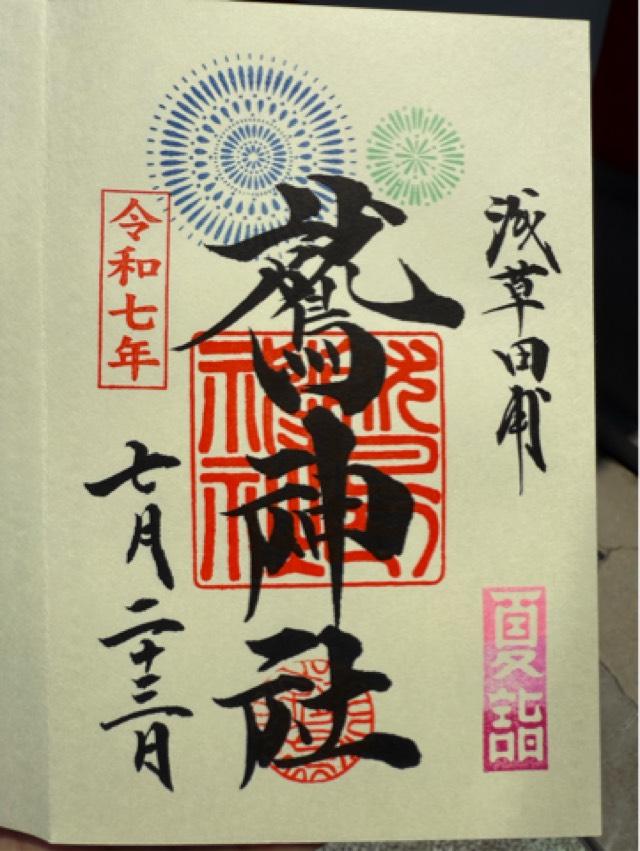 浅草田甫
鷲神社
令和七年
七月二十三日
夏詣